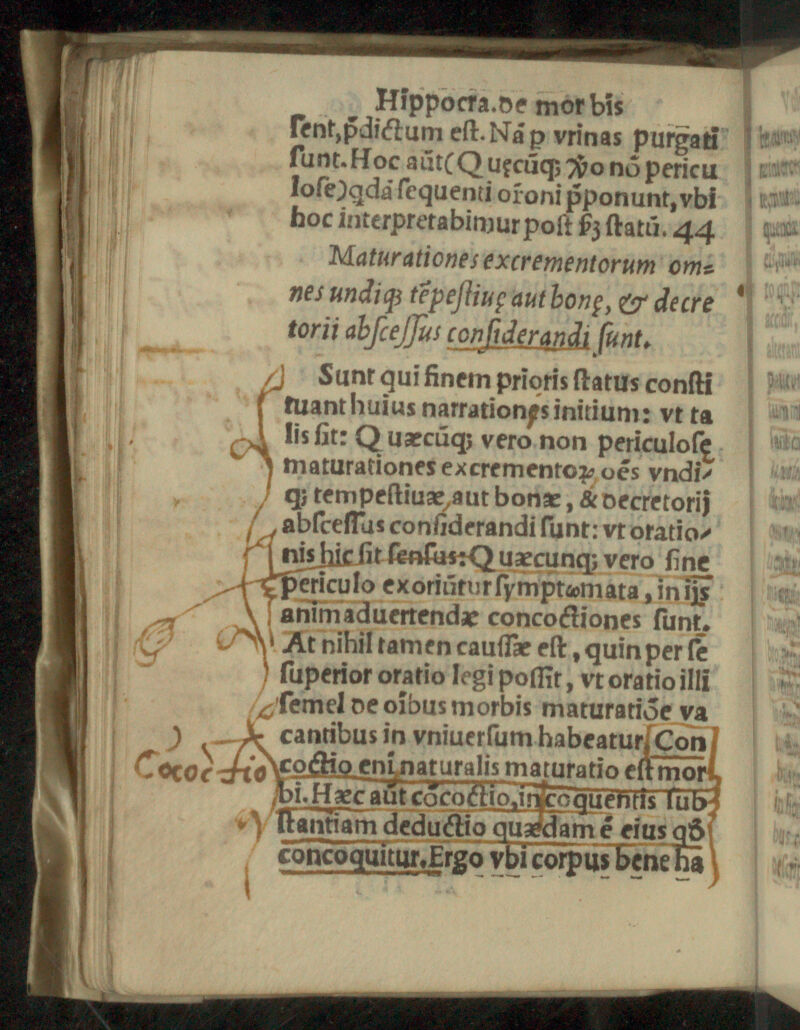 Hippocra.de morbis
sent,p̄dictum est. Nā p vrinas purgati
sunt. Hoc aūt(Quęcūq; ꝟo nō pericu
lose)qdā sequenti oroni p̄ponunt,vbi
hoc interpretabimur post statū. 44
Maturationes excrementorum om=
nes undiq; tēpestiuę aut bonę, & decre
torii abscessus considerandi sunt.
Sunt qui finem prioris status consti
tuant huius narrationęs initium: vt ta
lis sit: Quæcūq; vero non periculosę
maturationes excrementoꝝ oēs vndi-
q; tempestiuæ,aut bonæ, & decretorij
abscessus considerandi sunt: vt oratio-
nis hic sit sensus: Quæcunq; vero sine
periculo exoriūtur symptomata, in ijs
animaduertendæ concoctiones sunt.
At nihil tamen caussæ est, quin per se
superior oratio legi possit, vt oratio illi
semel de oībus morbis maturatiōe va
cantibus in vniuersum habeatur. Con
Cococtio
coctio enī naturalis maturatio est mor
bi. Hæc aūt cōcoctio,in coquentis sub
stantiam deductio quædam ē eius qđ
concoquitur. Ergo vbi corpus bene ha